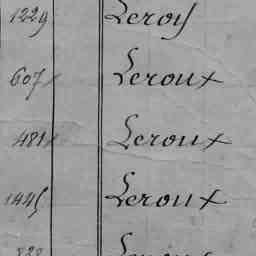 1229 Leroy
607 Leroux
481 Leroux
1445 Leroux